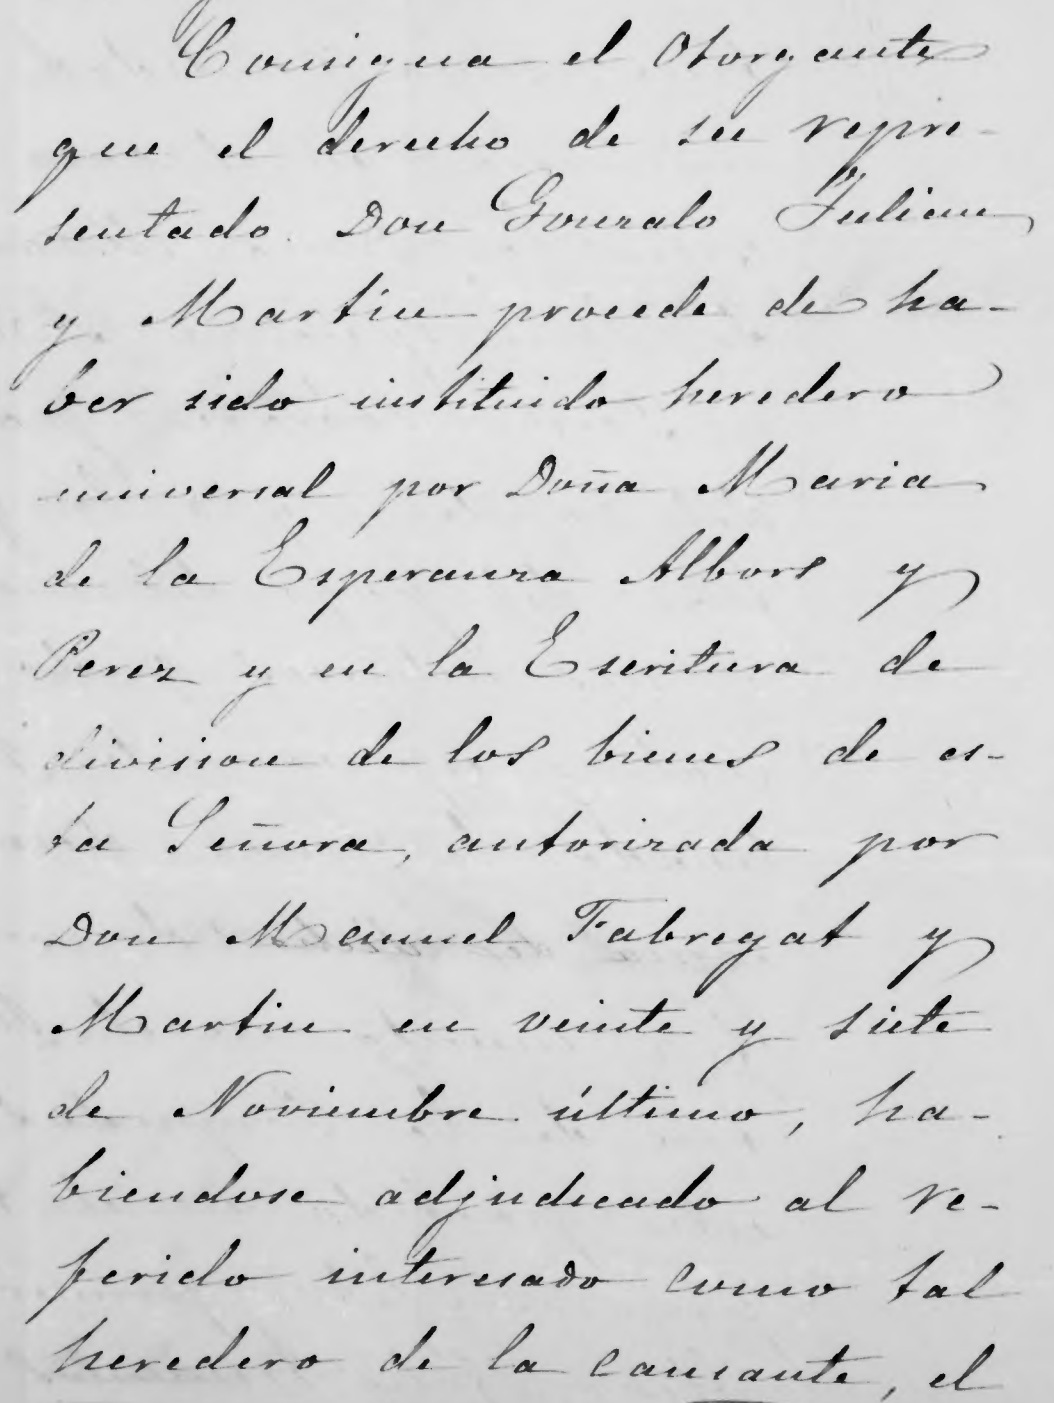 Consigna el Otorgante
que el derecho de su repre-
sentado Don Gonzalo Julian
y Martin procede de ha-
ber sido instituido heredero
universal por Doña Maria
de la Esperanza Albors y
Perez y en la Escritura de
division de los bienes de es-
ta Señora, autorizada por
Don Manuel Fabregat y
Martin en veinte y siete
de Noviembre último, ha-
biendose adjudicado al re-
ferido interesado como tal
heredero de la causante, el